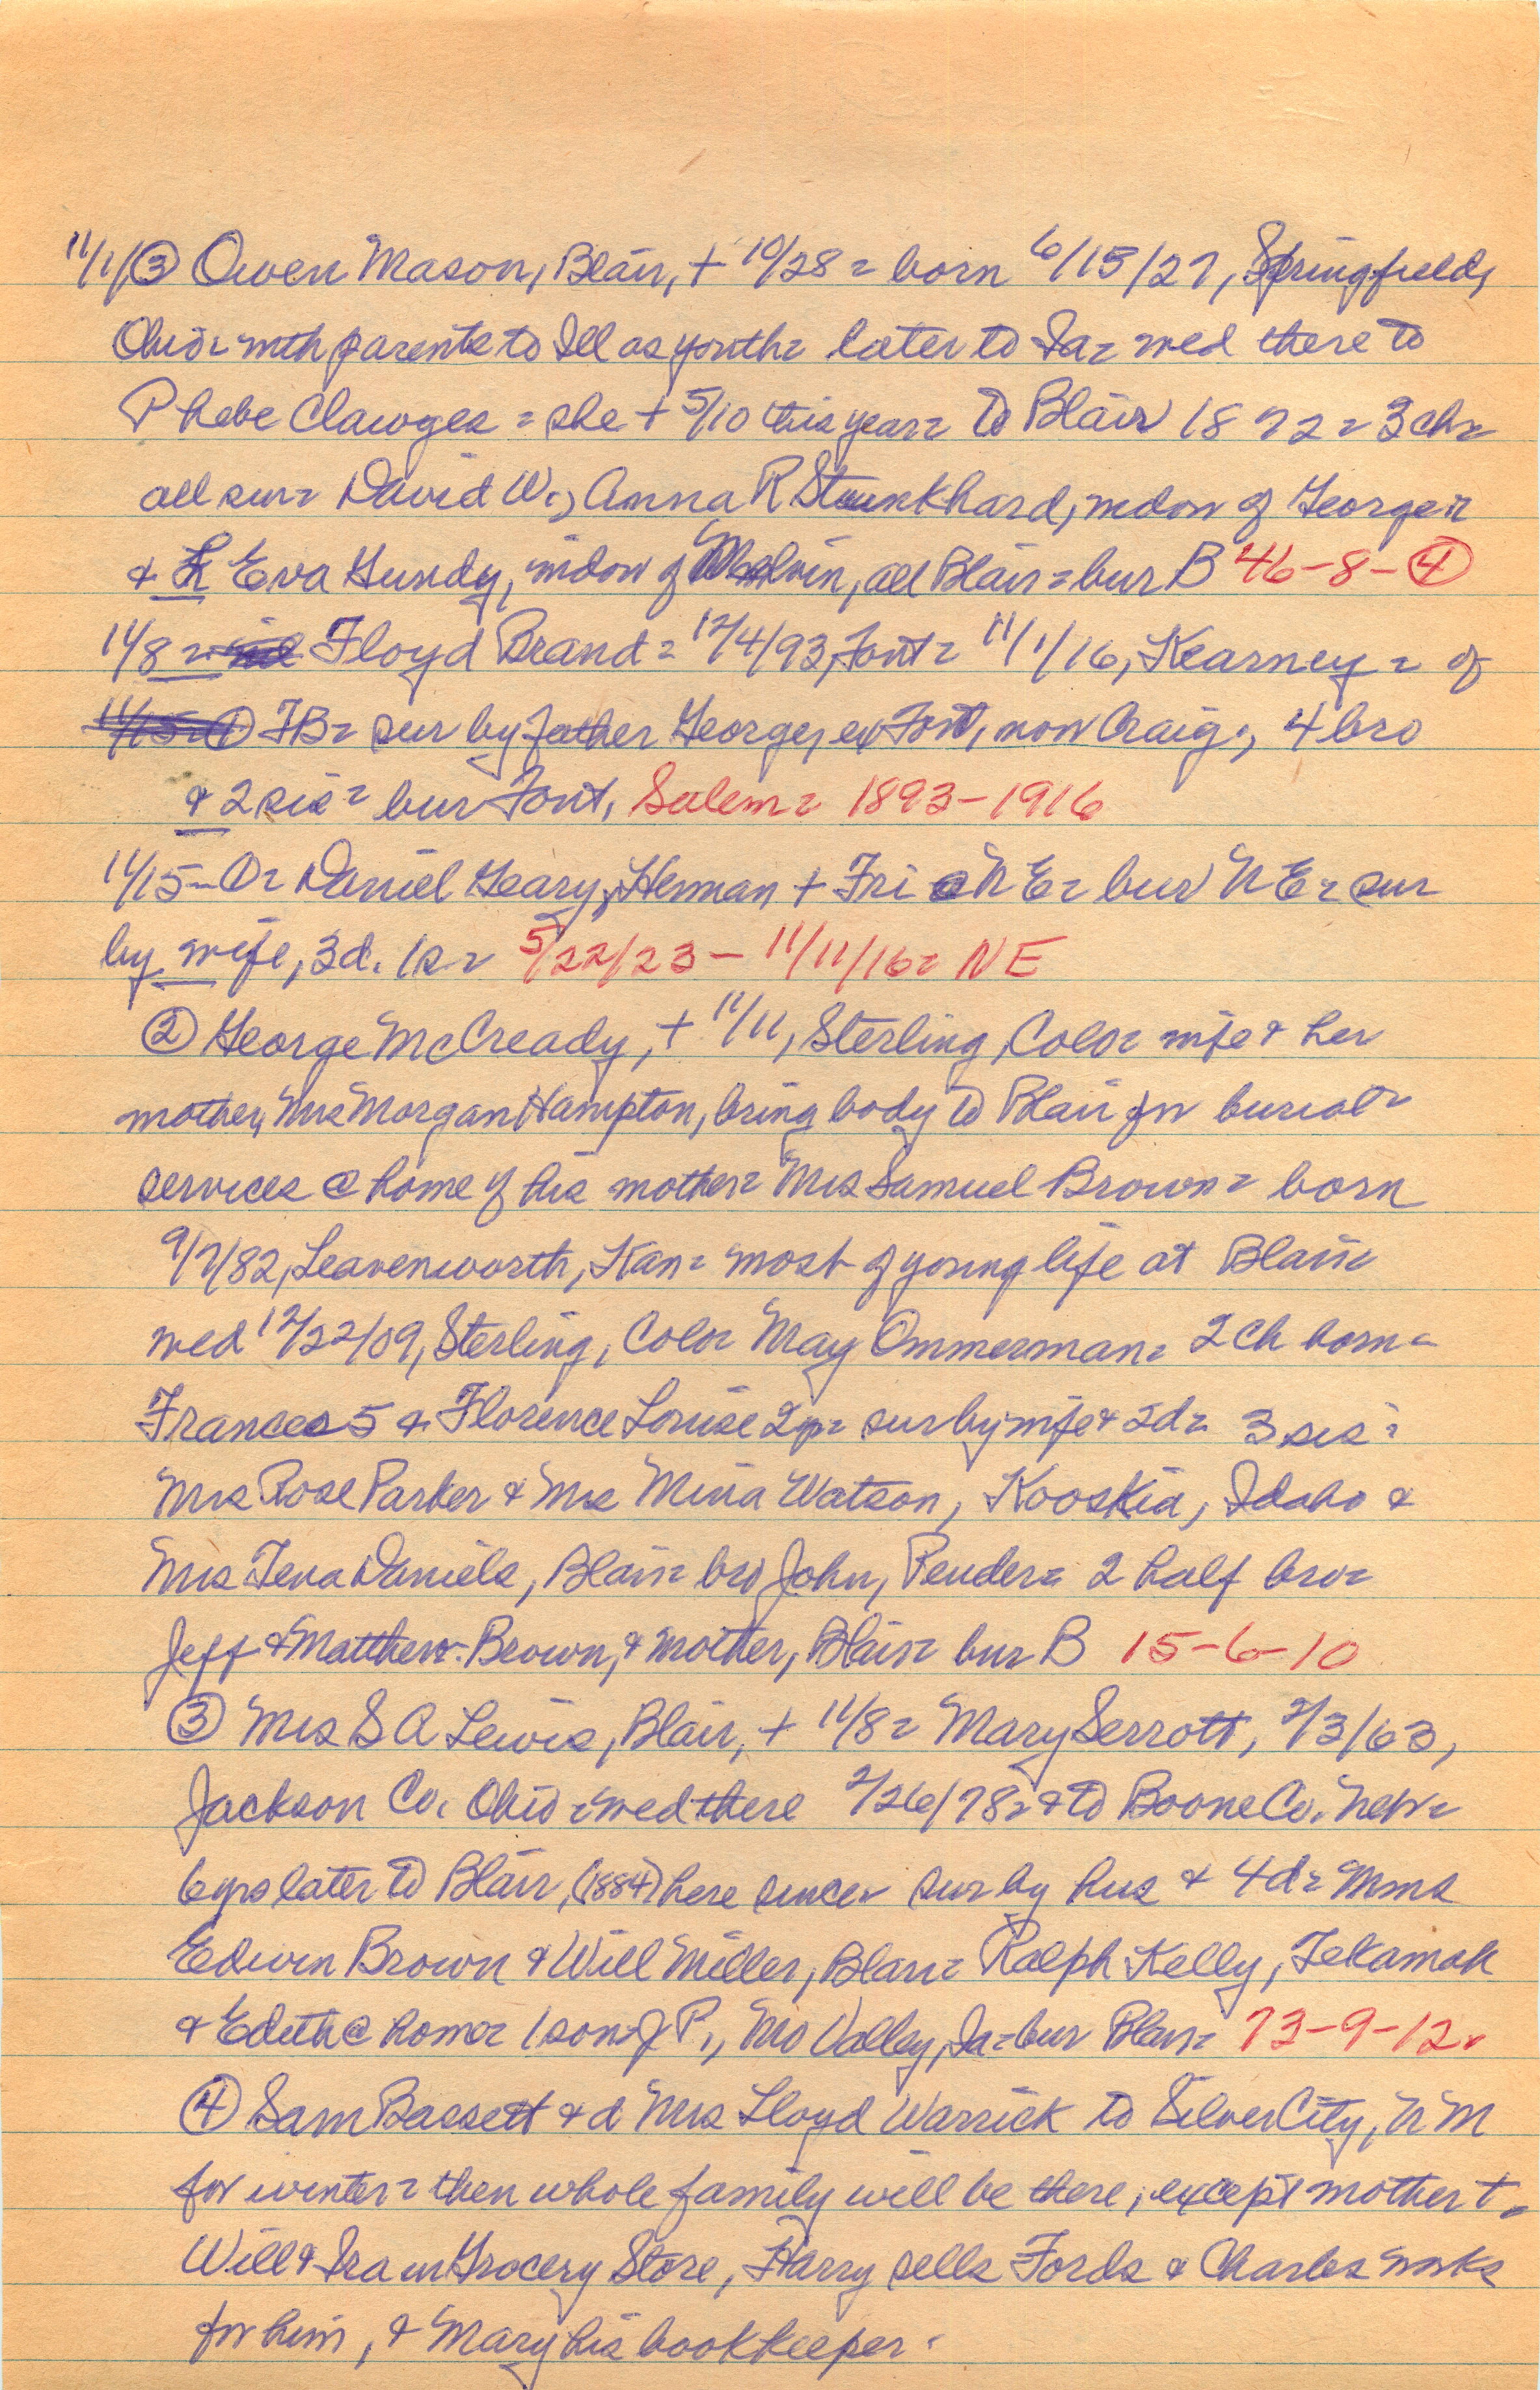 11/1/③ Owen Mason, Blair, + 10/28 = born 6/15/27, Springfield,
Ohio = with parents to Ill as youth = later to Ia = wed there to
Phebe Clawges = she + 5/10 this year = to Blair 1872 = 3 ch =
all sur = David W., Anna R Stunkhard, widow of George =
& Eva Gundy, widow of Melvin, all Blair = bur B 46-8-④
11/8 = Floyd Brand = 12/4/93, Font = 11/1/16, Kearney = of
11/15-① TB = sur by father George, ex Font, now Craig, 4 bro
& 2 sis = bur Font, Salem = 1893-1916
11/15-① = Daniel Geary, Herman + Fri NE = bur NE = sur
by wife, 3d. 1s = 5/22/23 - 11/11/16 = NE
② George McCready, + 11/11, Sterling, Colo = wife & her
mother, Mrs Morgan Hampton, bring body to Blair for burial =
services @ home of his mother = Mrs Samuel Brown = born
9/7/82, Leavenworth, Kan = most of young life at Blair =
wed 12/22/09, Sterling, Colo = May Ommerman = 2 ch born =
Frances 5 & Florence Louise 2 yr = sur by wife & 2d = 3 sis =
Mrs Rose Parker & Mrs Mina Watson, Kooskia, Idaho &
Mrs Tena Daniels, Blair = bro John, Pender = 2 half bro =
Jeff & Matthew Brown, & mother, Blair = bur B 15-6-10
③ Mrs S A Lewis, Blair, + 11/8 = Mary Serrott, 2/3/63,
Jackson Co. Ohio = wed there 2/26/78 = & to Boone Co. Neb =
6 yrs later to Blair, (1884) here since = sur by hus & 4d = Mms
Edwin Brown & Will Miller, Blair = Ralph Kelly, Tekamah
& Edith @ home = 1 son = J P., Mo Valley, Ia = bur Blair = 73-9-12.
④ Sam Bassett & d Mrs Lloyd Warrick to Silver City, N M
for winter = then whole family will be there, except mother + =
Will & Ira in Grocery Store, Harry sells Fords & Charles works
for him, & Mary his bookkeeper.